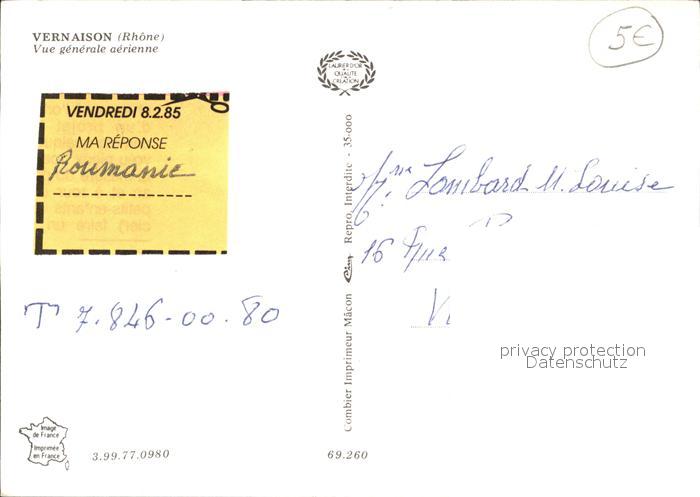 VERNAISON (Rhône)
Vue générale aérienne
5€
LAURIER D'OR
DE LA
QUALITE
DE LA
CREATION
VENDREDI 8.2.85
MA RÉPONSE
Roumanie
Combier Imprimeur Mâcon Cim Repro. Interdite - 35-000
Lombard M. Louise
16
T 7.846-00.80
privacy protection
Datenschutz
Image
de France
Imprimée
en France
3.99.77.0980
69.260